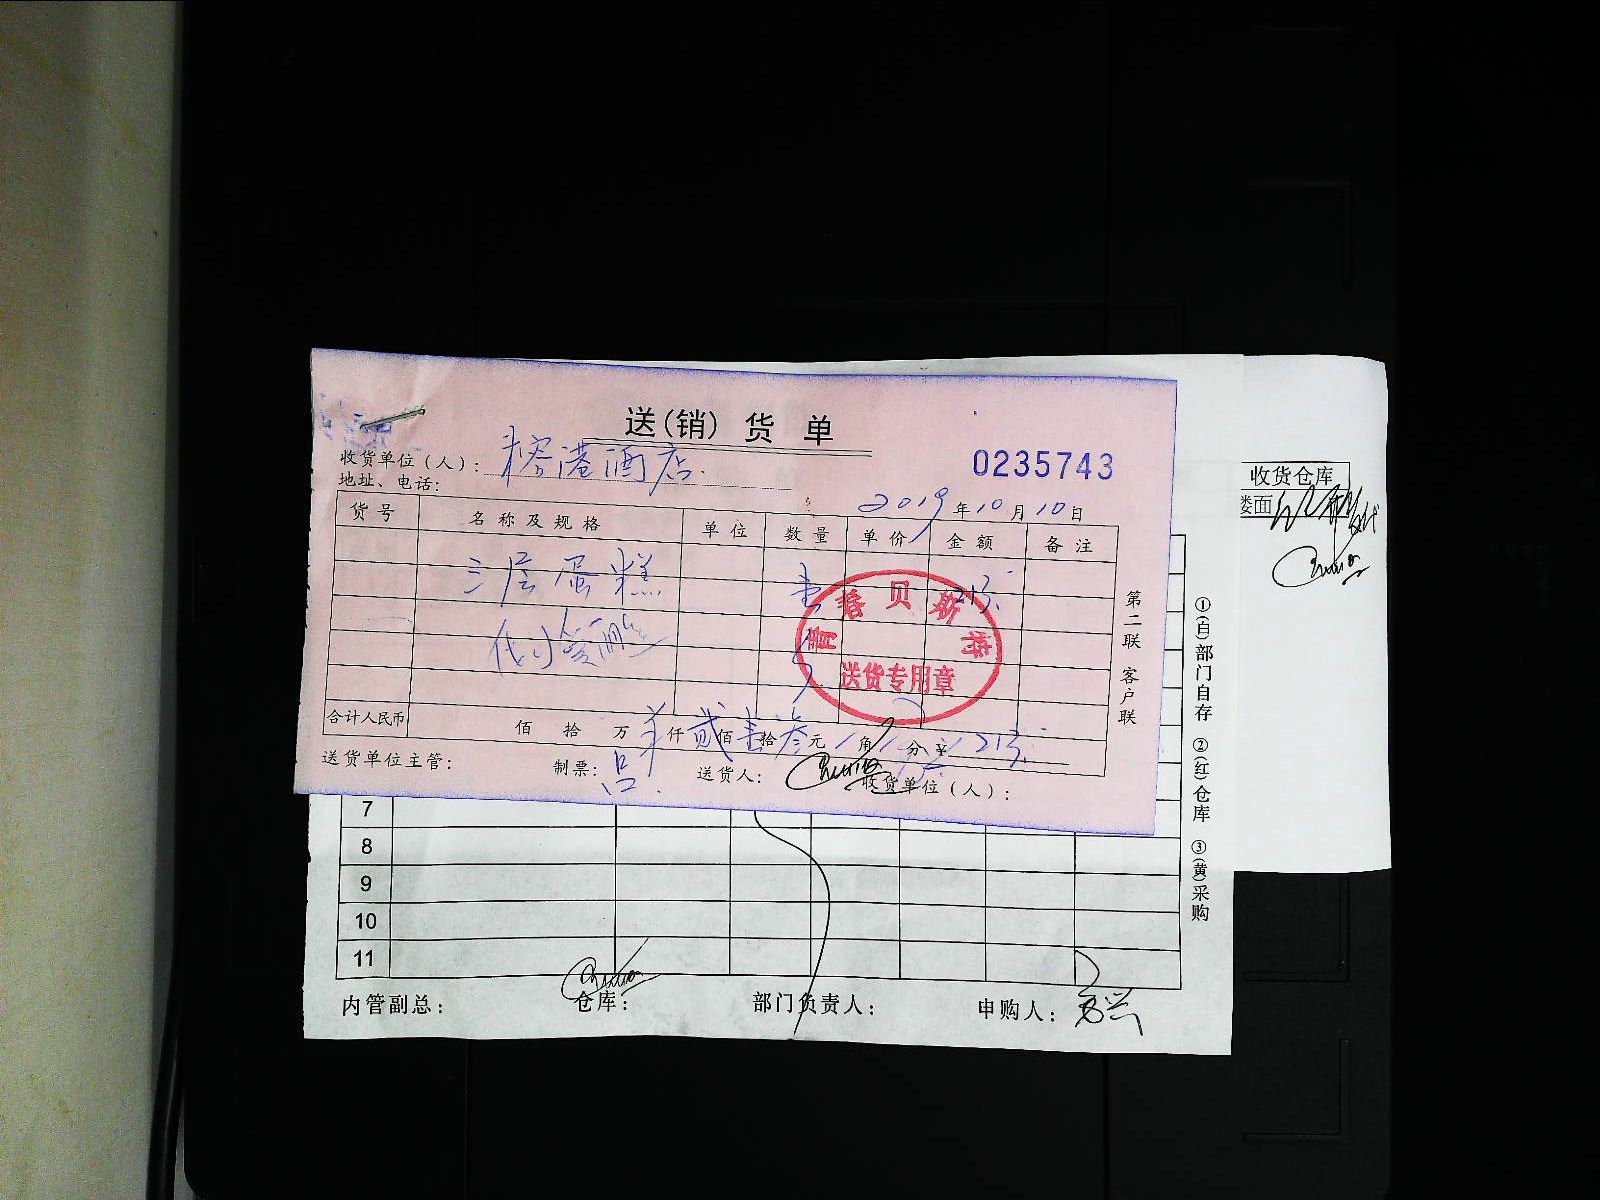 送(销)货单
收货单位(人): 榕港酒店.
0235743
地址、电话:
2019年10月10日
货号 名称及规格 单位 数量 单价 金额 备注
三层蛋糕 壹 213.
青春贝斯特
送货专用章
合计人民币 佰 拾 万 仟贰佰壹拾叁元 角 分 ¥ 213.
送货单位主管: 制票: 吕. 送货人: 收货单位(人):
第二联 客户联
收货仓库
娄面
7
8
9
10
11
内管副总: 仓库: 部门负责人: 申购人:
①(白)部门自存 ②(红)仓库 ③(黄)采购